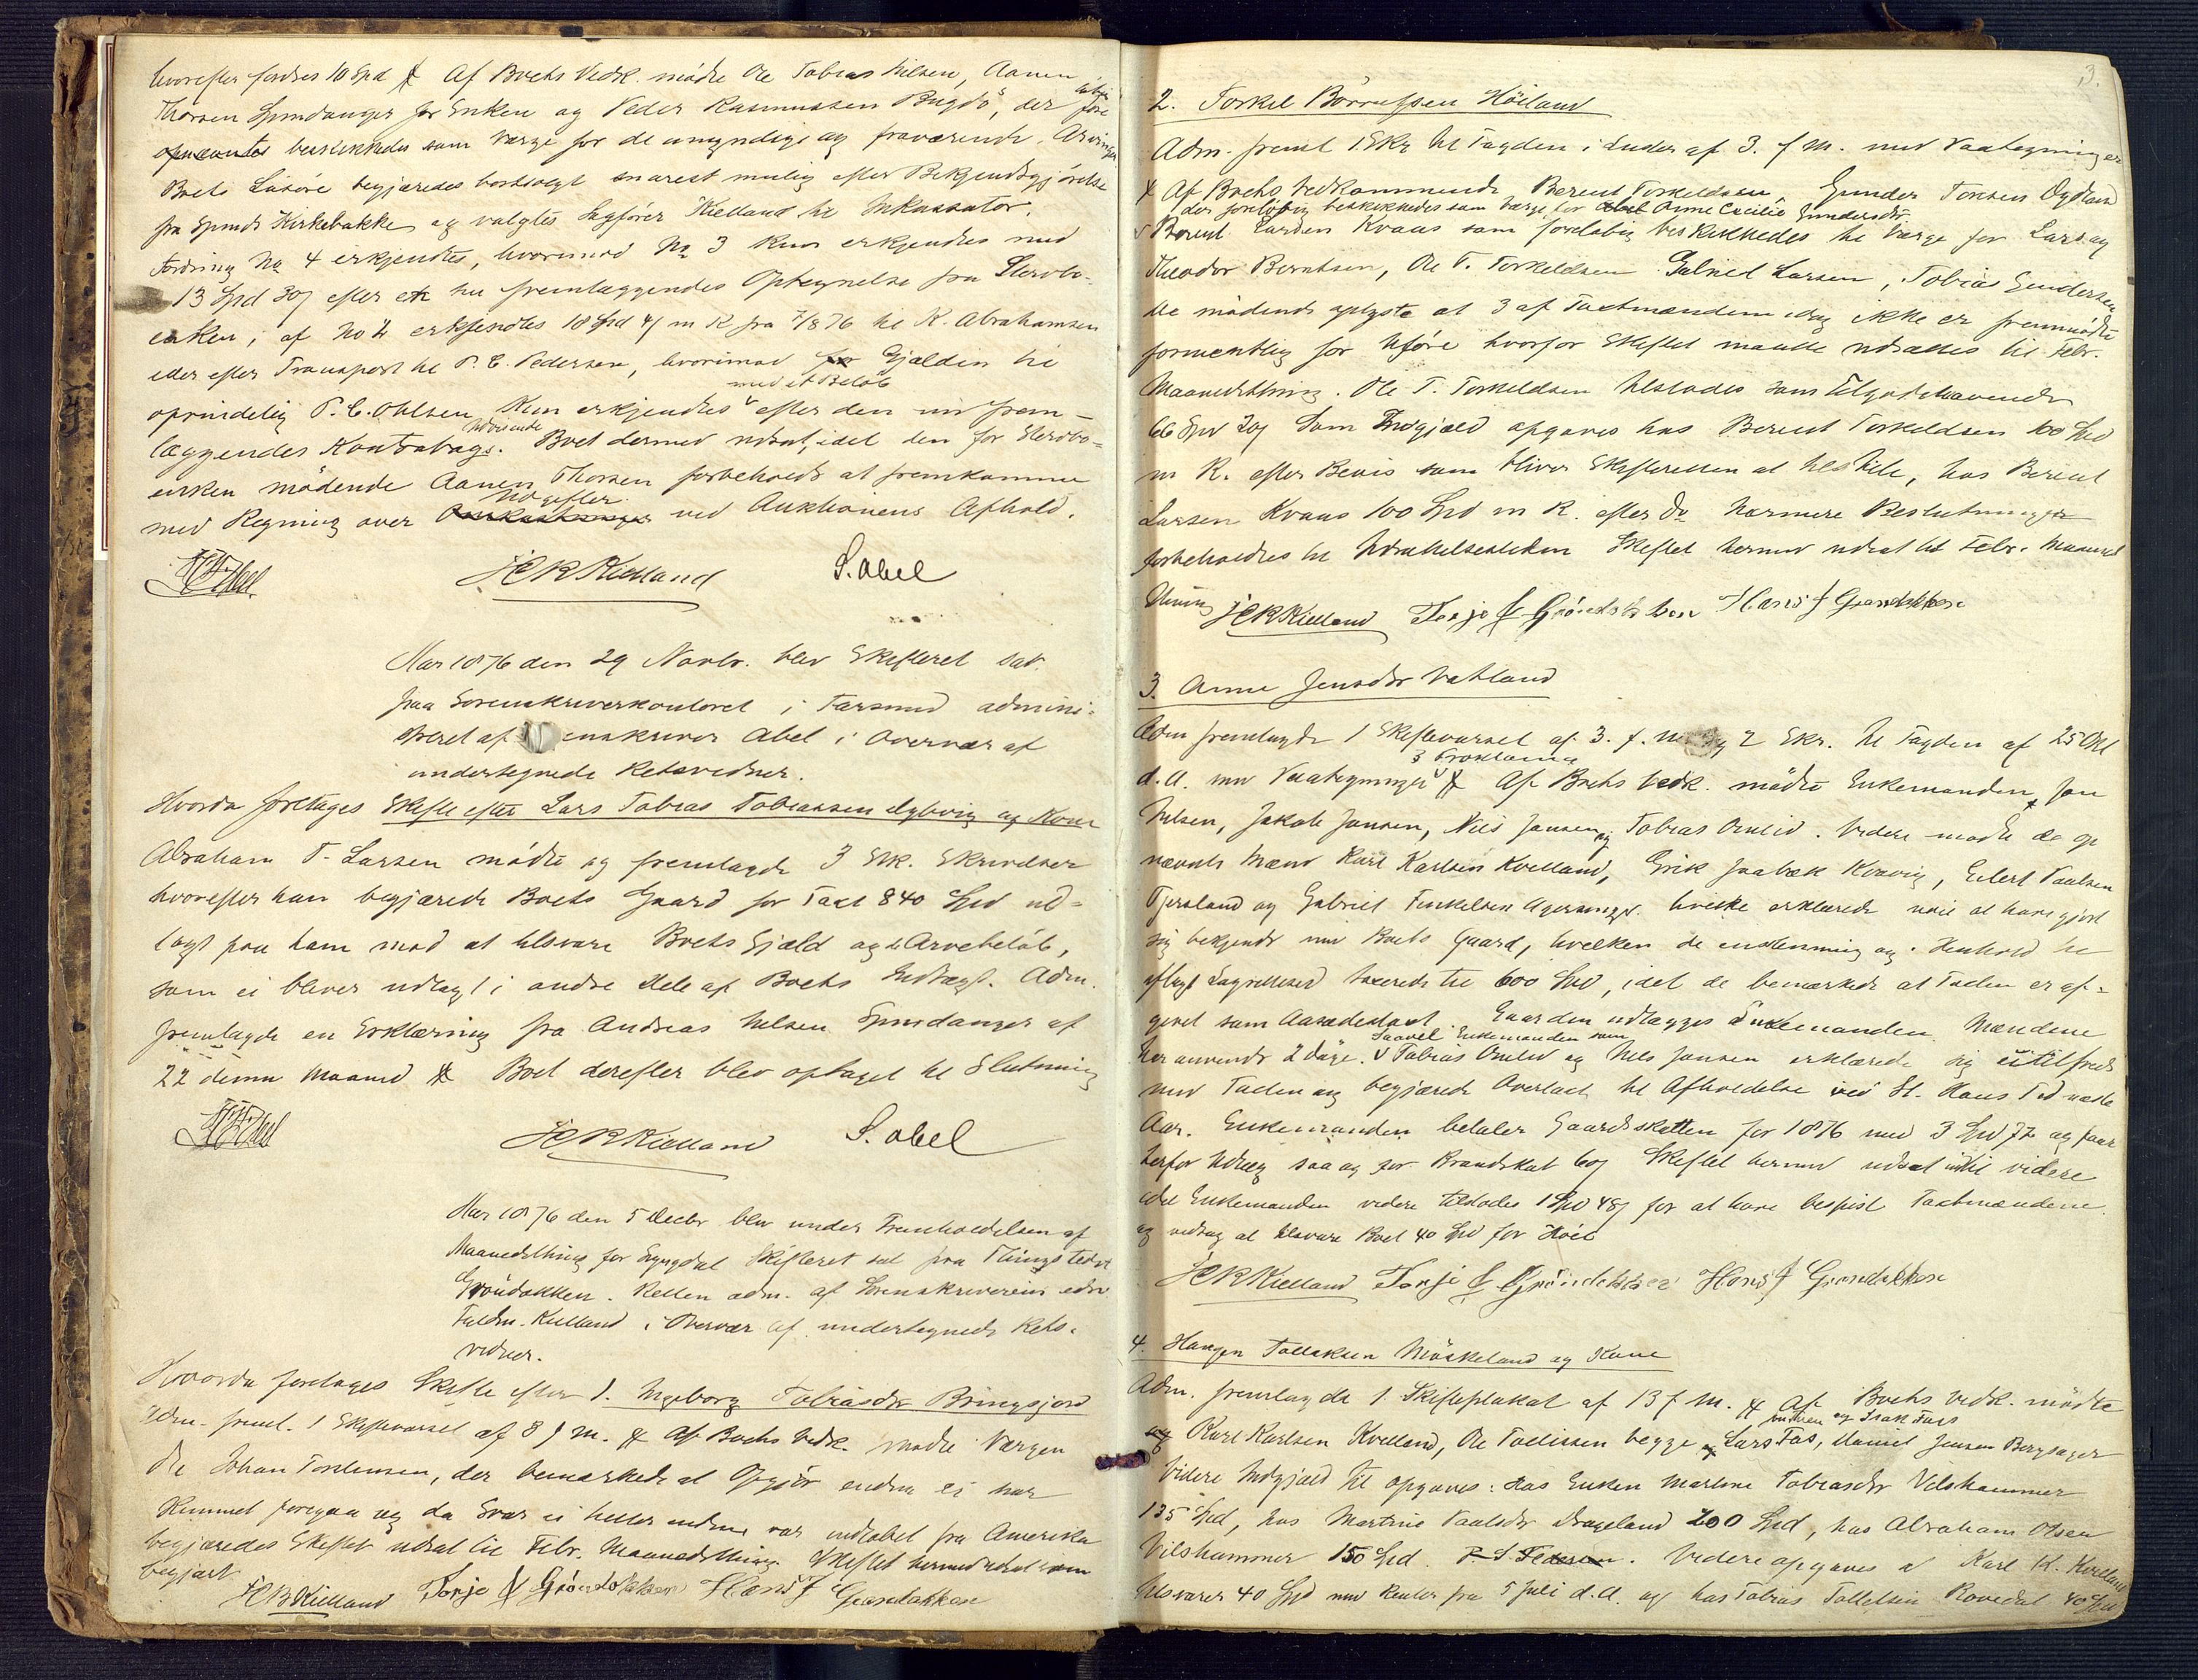 hvorefter fordres 10 Spd # Af Boets Vedk. mødte Ole Tobias Nilsen, Aanen
Thorsen Spindanger for Enken og Peder Rasmussen Bugdø, der
beskikkedes som Værge for de umyndige og fraværende Arvinger
Boets Løsøre begjæredes bortsolgt snarest mulig efter Bekjendtgjørelse
fra Spinds Kirkebakke og valgtes Sagfører Kielland til Inkassator.
Fordring No 4 erkjendtes, hvorimod No 3 kun erkjendtes med
13 Spd 30 efter en nu fremlæggendes Optegnelse fra Stervbo-
enken; af No 2 erkjendtes 18 Spd 4 m R fra 7/8 76 til K. Abrahamsen
eller efter Transport til P. C. Pedersen, hvorimod for Gjælden til
med et Beløb
oprindelig P. C. Ohlsen kun erkjendtes efter den nu frem-
udvisende
læggendes Kontrabog. Boet dermed udsat, idet den for Stervbo-
enken mødende Aanen Thorsen forbeholdt at fremkomme
Udgifter
med Regning over Omkostninger ved Auktionens Afhold.
JCR Kielland S. Abel
Aar 1876 den 29 Novbr. blev Skifteret sat
paa Sorenskriverkontoret i Farsund admini-
streret af Sorenskriver Abel i Overvær af
undertegnede Retsvidner.
Hvorda foretoges Skifte efter Lars Tobias Tobiassen Dybvig og Kone
Abraham T. Larsen mødte og fremlagde 3 Stk. Skrivelser
hvorefter han begjærede Boets Gaard for Taxt 840 Spd ud-
lagt paa ham mod at tilsvare Boets Gjæld og Arvebeløb,
som ei bliver udlagt i andre Dele af Boets Indtægt. Adm.
fremlagde en Erklæring fra Andreas Nilsen Spindanger af
22 denne Maaned # Boet derefter blev optaget til Slutning
JCR Kielland S. Abel
Aar 1876 den 5 Decbr blev under Fremholdelsen af
Maanedsthing for Lyngdal Skifteret sat paa Thingstedet
Grøndokken. Retten adm. af Sorenskriverens edsv
Fuldm. Kielland i Overvær af undertegnede Rets-
vidner.
Hvorda foretoges Skifte efter 1. Ingeborg Tobiasdtr Bringsjord
Adm. freml. 1 Skiftevarsel af 8 f. M. # Af Boets Vedk. mødte Værgen
Ole Johan Torkensen, der bemærkede at Opgjør endnu ei har
kunnet foregaa og da Svar ei heller endnu var indløbet fra Amerika
begjæredes Skiftet udsat til Febr. Maanedsthing. Skiftet hermed udsat som
begjært.
JCR Kielland Torje J Grøndokken Hans J Grøndokken
3.
2. Torkel Børrufsen Høiland
Adm. freml 1 Skr til Fogden i Luder af 3. f. M. med Paategninger
# Af Boets Vedkommende Berent Torkeldsen, Gunder Torsen Ogdland
der foreløbig beskikkedes som Værge for Anne Cecilie Gundersdtr.
Berent Larsen Kvaas som foreløbig beskikkedes til Værge for Lars og
Theodor Berntsen, Ole T. Torkeldsen Gabriel Larsen, Tobias Gundersen
De mødende oplyste at 3 af Taxtmændene idag ikke er fremmødte
formentlig for Uføre hvorfor Skiftet maatte udsættes til Febr.
Maanedsthing. Ole T. Torkeldsen tilstodes som Tilgodehavende
66 Spd 20 Som Indgjæld opgaves hos Berent Torkeldsen 100 Spd
m R. efter Bevis som bliver Skifteretten at tilstille, hos Berent
Larsen Kvaas 100 Spd m R. efter do Nærmere Beslutninger
forbeholdtes til Udsættelsestiden Skiftet hermed udsat til Febr. Maaned
thing JCR Kielland Torje J Grøndokken Hans J Grøndokken
3. Anne Jensdtr Vatland
Adm fremlagde 1 Skiftevarsel af 3. f. M. og 2 Skr. til Fogden af 25 Okt
3 Proklama
d. A. med Paategninger # Af Boets Vedk. mødte Enkemanden, Jon
Nilsen, Jakob Jansen, Nils Jansen og Tobias Omlid. Videre mødte de op
nævnte Mænd Karl Karlsen Kvelland, Erik Jaabæk Kvavig, Eilert Paulsen
Tjersland og Gabriel Tinkelsen Agersanger. hvilke erklærede nøie at have gjort
sig bekjendt med Boets Gaard, hvilken de enstemmig og i Henhold til
aflagt Lagrettesed taxerede til 600 Spd, idet de bemærkede at Tælen er af-
givet som Aasædestaxt. Gaarden udlægges Enkemanden Mændene
Saavel Enkemanden som
har anvendt 2 Dage. Tobias Omlid og Nils Jansen erklærede sig utilfreds
med Taxten og begjærede Overtaxt til Afholdelse ved St. Hans Tid næste
Aar. Enkemanden betaler Gaardskatten for 1876 med 3 Spd 72 og faar
herfor Udlæg saa og for Brandskat 60 Skiftet hermed udsat indtil videre
idet Enkemanden videre tilstodes 1 Spd 48 for at have bespist Taxtmændene
og vedtog at tilsvare Boet 40 Spd for Høiet
JCR Kielland Torje J Grøndokken Hans J Grøndokken
4. Haagen Tollaksen Møskeland og Kone
Adm. fremlagde 1 Skifteplakat af 13 f. M. # Af Boets Vedk. mødte
og Isak Faas
og Karl Karlsen Kvelland, Ole Tollissen begge og Lars Faas, Daniel Jensen Bergsager
Videre Indgjæld til opgaves: Hos Enken Martine Tobiasdtr Vilshammer
135 Spd, hos Martine Paalsdtr Drageland 200 Spd, hos Abraham Olsen
Vilshammer 150 Spd. P. S. Pedersen. Videre opgaves at Karl K. Kvelland
tilsvarer 40 Spd med Renter fra 5 Juli d. A. og hos Tobias Tollefsen Rovedal 40 Spd